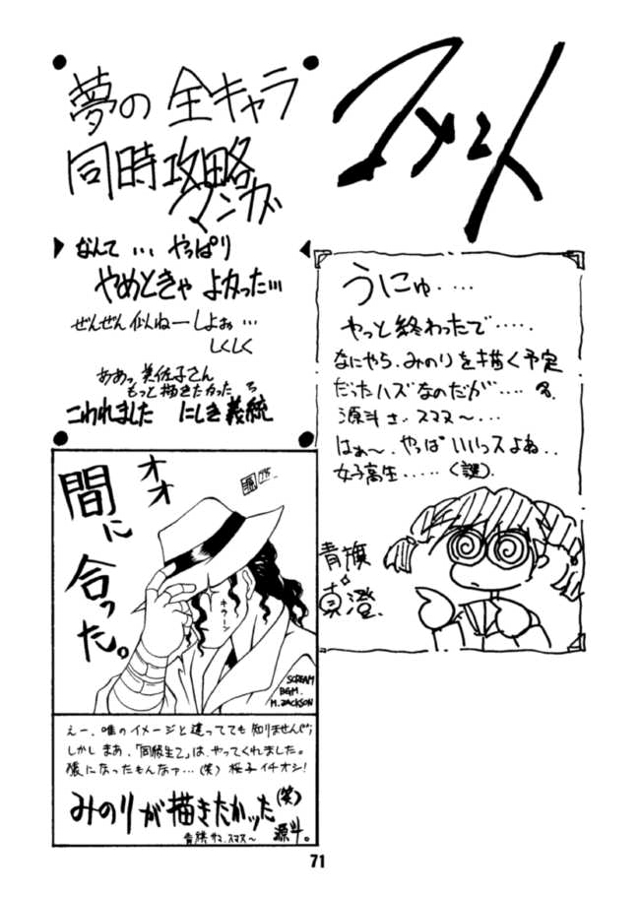 コメント
夢の全キャラ
同時攻略
マンガ
なんて…やっぱり
やめときゃよかった…
ぜんぜん似ねーしよぉ…
しくしく
ああっ美佐子さん
もっと描きたかった
こわれました にしき義統
うにゅ‥‥
やっと終わったで‥‥.
なにやら、みのりを描く予定
だったハズなのだが‥‥
源斗さ、スマヌ〜…
はぁ〜、やっぱいいっスよね..
女子高生‥‥.(謎).
青旗
真澄.
オオ
間に
合った。
キラーン
SCREAM
BGM.
M.JACKSON
えー、唯のイメージと違ってても知りませんぜ;
しかしまあ、「同級生2」は、やってくれました。
僕になったもんなァ…(笑) 桜子イチオシ!
みのりが描きたかッた(笑)
青旗サマ.スマヌ〜
源斗。
71